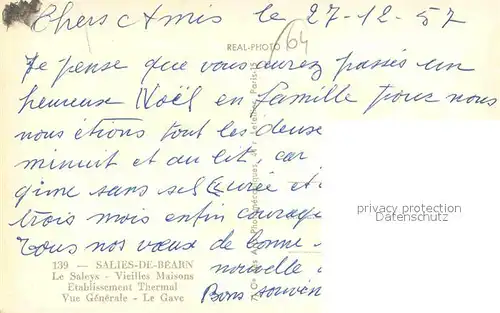 Chers Amis le 27-12-57
64
REAL-PHOTO
Je pense que vous aurez passés un
heureux Noël en famille pour nous
nous étions tout les deux
minuit et au lit, car
gime sans sel et
trois mois enfin courage
Tous nos vœux de bonne
139 — SALIES-DE-BEARN
nouvelle
Le Saleys - Vieilles Maisons
Etablissement Thermal
Bons souvin
Vue Générale - Le Gave
privacy protection
Datenschutz